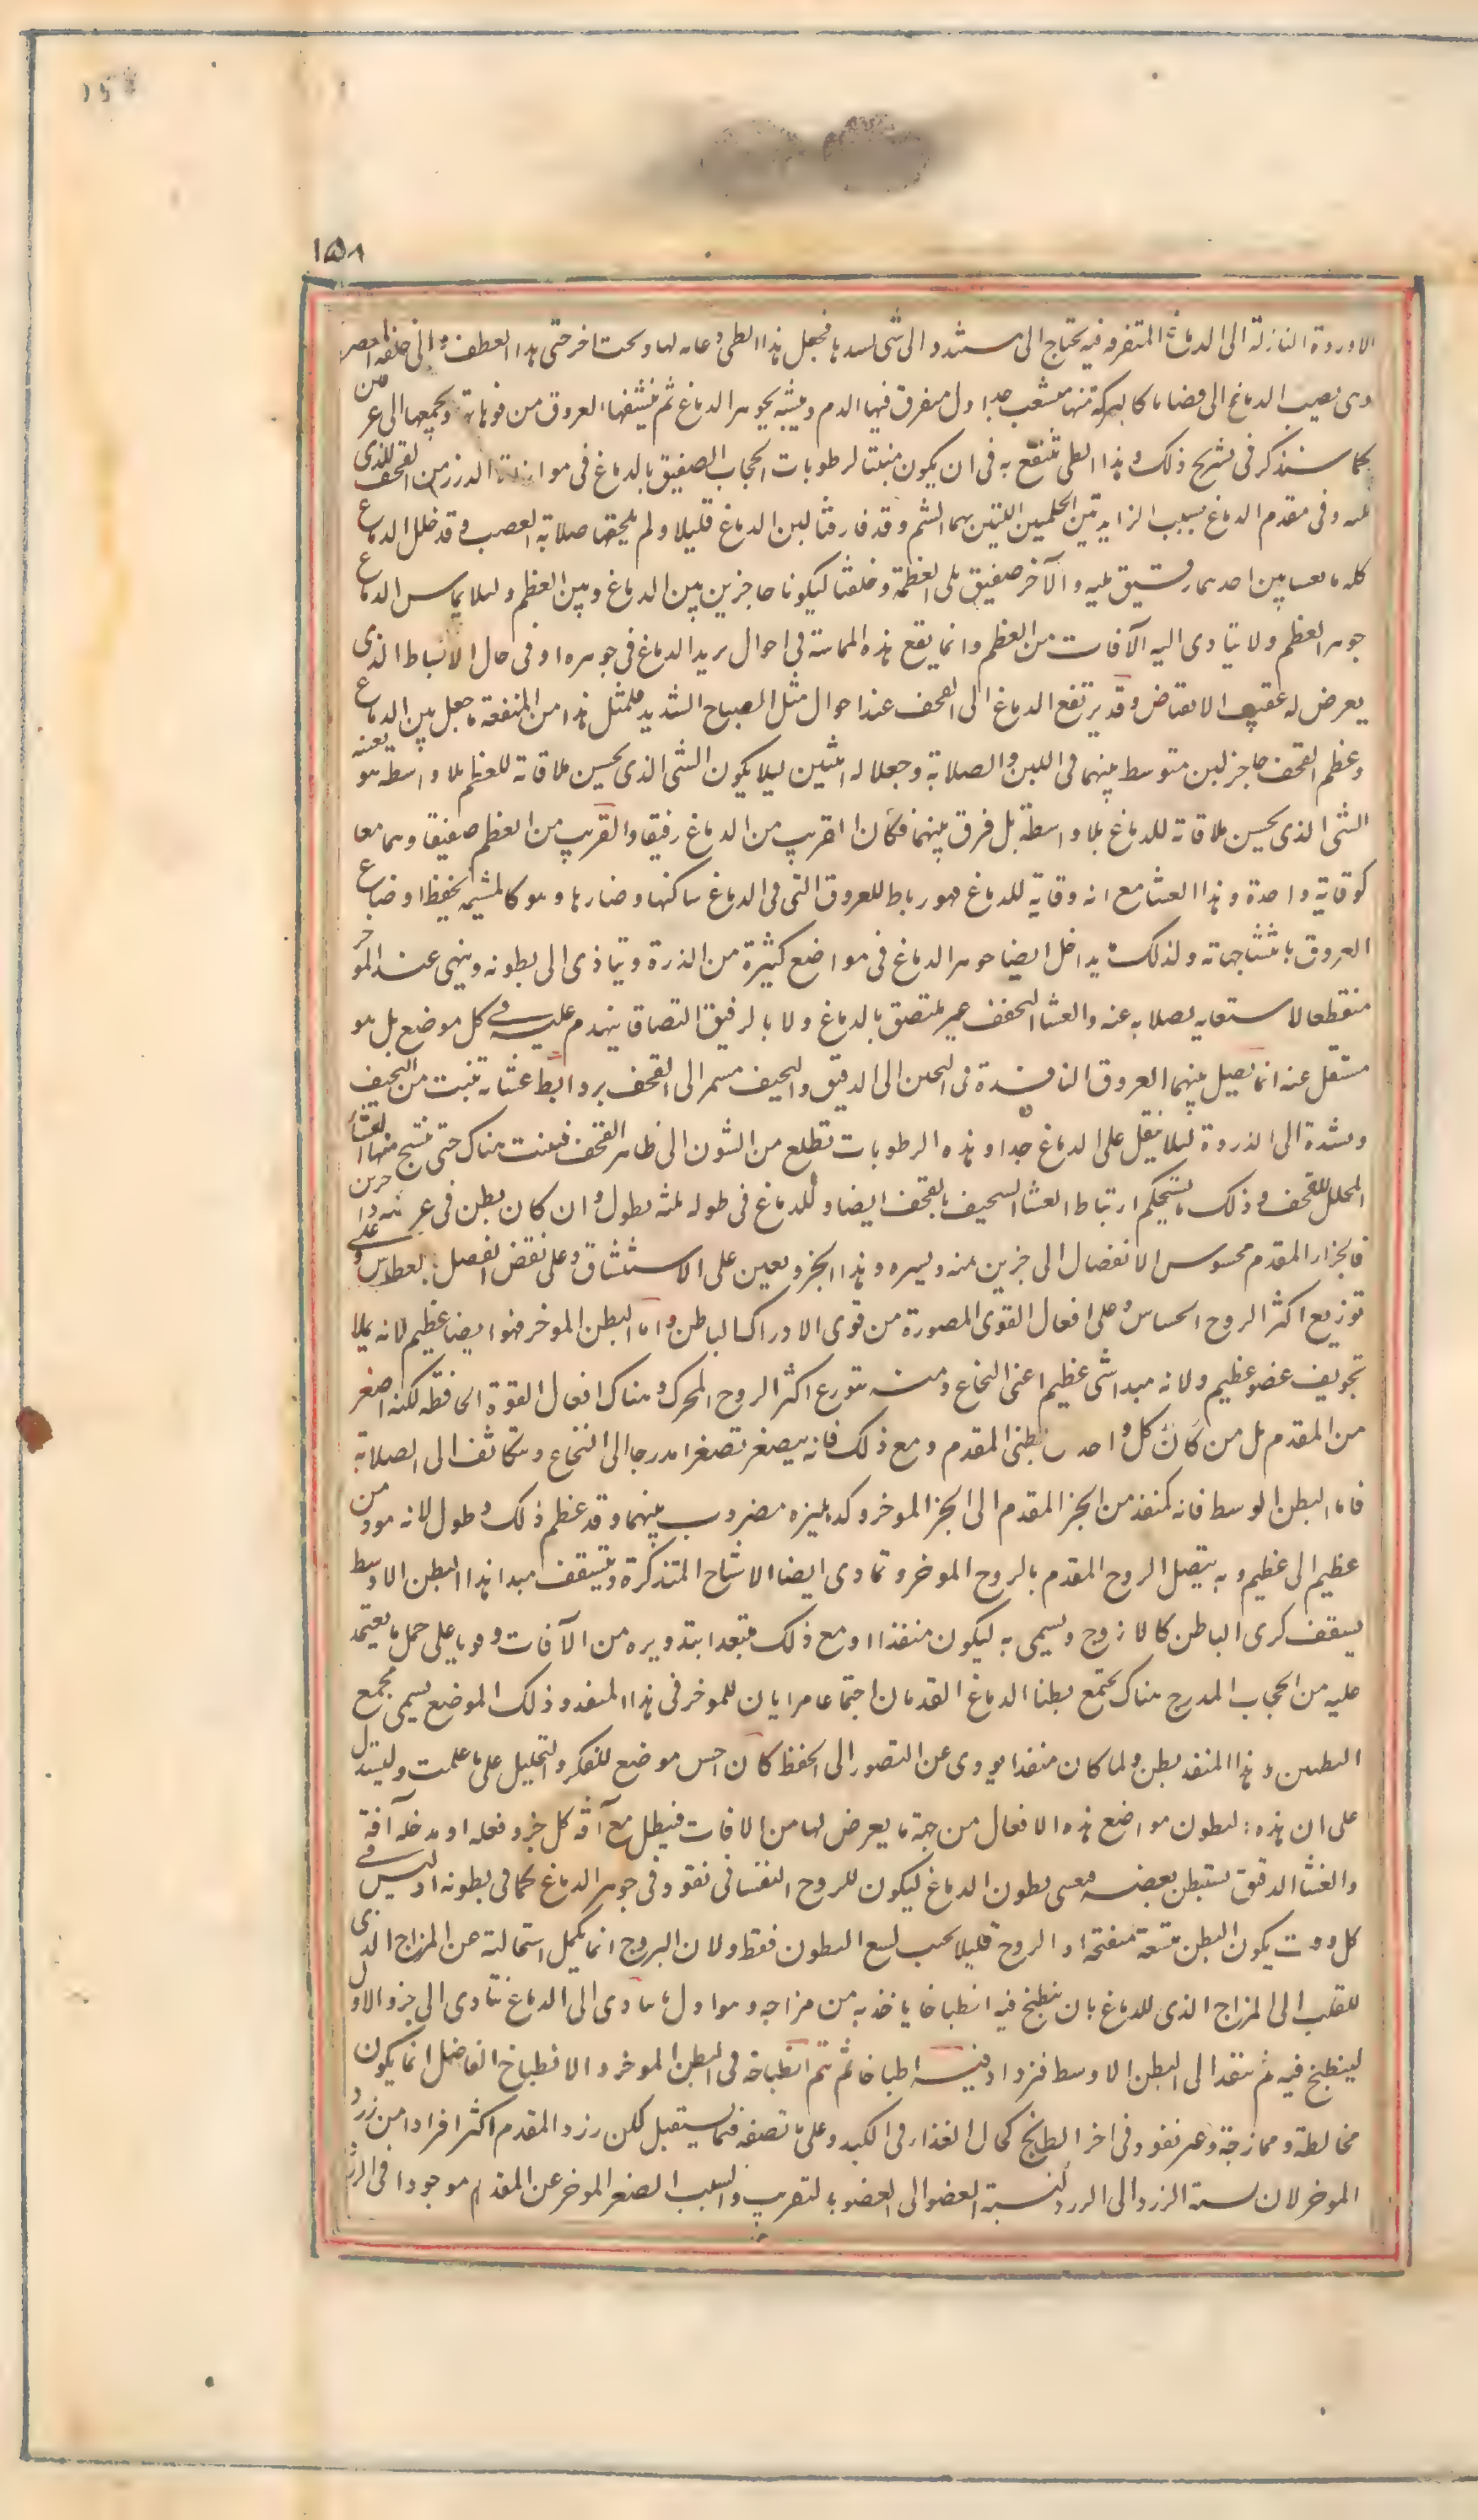 ١٥٨
الاوردة النازلة الى الدماغ المتفرقه فيه تحتاج الى مستند و الى شى يسدها فجعل هذا الطى دعامه لها و تحت اخر حتى هذا العطف و الى خلفه العصر
وهى نصيب الدماغ الى فضاء ما كالبركة منها تتشعب جداول متفرق فيها الدم ويتشبه بجوهر الدماغ ثم ينشفها العروق من فوهاتها وبجمعها الى عر من
كما سنذكر فى تشريح ذلك و هذا الطى ينتفع به فى ان يكون منبتا لرطوبات الحجاب الصفيق بالدماغ فى موازنة الدرز من القحف الذى
يليه وفى مقدم الدماغ بسبب الزايدتين الحلميين اللتين بهما الشم وقد فارقتا لين الدماغ قليلا ولم يلحقها صلابة العصب و قد خلل الدماغ
كله بالغشايين احدهما رقيق يليه والآخر صفيق يلى العظمة وخلقتا ليكونا حاجزين بين الدماغ وبين العظم وليلا يماس الدماغ
جوهر العظم ولا يتادى اليه الآفات من العظم وانما يقع هذه المماسة فى احوال يريد الدماغ فى جوهره او فى حال الانبساط الذى
يعرض له عقيب الانقباض وقد يرتفع الدماغ الى القحف عند احوال مثل الصياح الشديد فلمثل هذا من المنفعة ما جعل بين الدماغ
وعظم القحف حاجز لين متوسط بينهما فى اللين والصلابة وجعلا له اثنين ليلا يكون الشى الذى يحسن ملاقاته للعظم بلا واسطه هو بعينه
الشى الذى يحسن ملاقاته للدماغ بلا واسطة بل فرق بينهما فكان القريب من الدماغ رقيقا والقريب من العظم صفيقا وهما معا
كوقاية واحدة و هذا الغشا مع انه وقاية للدماغ فهو رباط للعروق التى فى الدماغ ساكنها وضاربها وهو كالمشيمه يحفظ اوضاع
العروق بانتساجها ته ولذلك يداخل ايضا جوهر الدماغ فى مواضع كثيرة من الذرة ويتاذى الى بطونه وينهى عند المؤخر
منقطعا لاستغنايه بصلابه عنه والغشا الخفف غير ملتصق بالدماغ ولا بالرقيق التصاقا ينهدم عليه فى كل موضع بل هو
مستقل عنه انما يصل بينهما العروق النافذة فى النحن الى الدقيق والنحيف مسمر الى القحف بروابط غشايه تنبت من النحيف
وتشدة الى الذروة ليلا يثقل على الدماغ جدا و هذه الرطوبات تطلع من الشون الى ظاهر القحف فينبت هناك حتى ينتسج منها الغشا
المحلل للقحف و ذلك ما يستحكم ارتباط الغشا السحيف بالقحف ايضا و للدماغ فى طوله ثلثه بطون و ان كان بطن فى عرضه ذا جزين
فالجزء المقدم محسوس الانفصال الى جزين يمنه ويسره وهذا الجزو يعين على الاستنشاق و على نفض الفضل بالعطاس و على
توزيع اكثر الروح الحساس و على افعال القوى المصورة من قوى الادراك الباطن و اما البطن الموخر فهو ايضا عظيم لانه يملا
تجويف عضو عظيم ولانه مبدا شى عظيم اعنى النخاع ومنه يتوزع اكثر الروح المحرك و هناك افعال القوة الحافظه لكنه اصغر
من المقدم بل من كان كل واحد من بطنى المقدم ومع ذلك فانه يصغر تصغرا مدرجا الى النخاع ويتكاثف الى الصلابة
فاما البطن الوسط فانه كمنفذ من الجز المقدم الى الجز الموخر وكدهليزه مضروب بينهما وقد عظم ذلك و طول لانه مودى من
عظيم الى عظيم و به يتصل الروح المقدم بالروح الموخر وتمادى ايضا الاشباح المتذكرة و يتسقف مبدا هذا البطن الاوسط
بسقف كرى الباطن كالازوج ويسمى به ليكون منفذا ومع ذلك مبتعدا بتدويره من الآفات وقويا على حمل ما يعتمد
عليه من الحجاب المدرج هناك يجتمع بطنا الدماغ القدمان اجتماعا مرايان للموخر فى هذا المنفذ وذلك الموضع يسمى مجمع
البطنين و هذا المنفذ بطن و لما كان منفذا يودى عن التصور الى الحفظ كان احسن موضع للتفكر والتخيل على ما علمت وليستدل
على ان هذه البطون مواضع هذه الافعال من جهة ما يعرض لها من الافات فيبطل مع آفة كل جزو فعله او يدخله آفة
والغشا الدقيق يستبطن بعضه فيغشى بطون الدماغ ليكون للروح النفسانى نفوذ فى جوهر الدماغ كما فى بطونه اذ ليس فى
كل وقت يكون البطن متسعة منفتحة او الروح قليلا بحسب لسع البطون فقط ولان الروح انما يكمل استحالته عن المزاج الذى
للقلب الى المزاج الذى للدماغ بان ينطبخ فيه انطباخا ياخذ به من مزاجه وهو اول ما يتادى الى الدماغ يتادى الى جزو الاول
لينطبخ فيه ثم ينفذ الى البطن الاوسط فيزداد فيه انطباخا ثم يتم انطباخه فى البطن الموخر و الانطباخ الفاضل انما يكون
مخالطة وممازجة و عبر نفوذ فى اخر الطابخ كحال الغذاء فى الكبد و على ما نصفه فيما يستقبل لكن زرد المقدم اكثر افرادا من زرد
الموخر لان نسبة الزرد الى الزرد كنسبة العضو الى العضو بالتقريب والسبب المصغر الموخر عن المقدم موجود فى الزرد